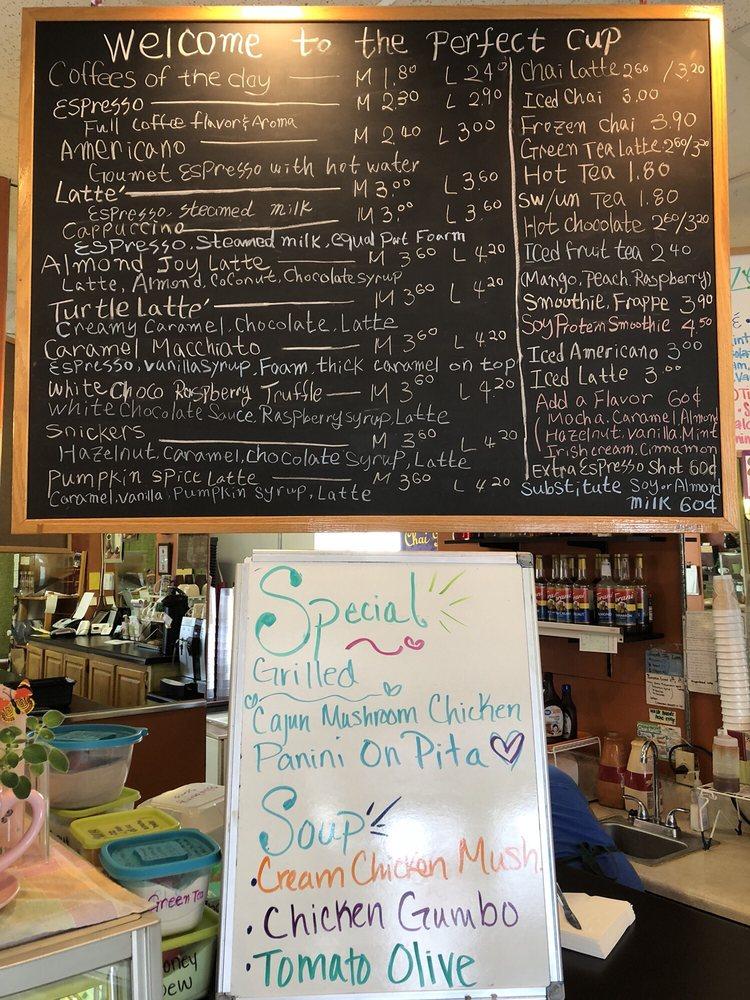 Welcome to the Perfect Cup
Coffees of the day M 1.80 L 2.40
Espresso M 2.30 L 2.90
Full Coffee flavor & Aroma
Americano M 2.40 L 3.00
Gourmet Espresso with hot water
Latte' M 3.00 L 3.60
Espresso, steamed milk
Cappuccino M 3.00 L 3.60
Espresso, Steamed milk, equal Part Foarm
Almond Joy Latte M 3.60 L 4.20
Latte, Almond, Coconut, Chocolate Syrup
Turtle Latte' M 3.60 L 4.20
Creamy Caramel, Chocolate, Latte
Caramel Macchiato M 3.60 L 4.20
Espresso, vanilla syrup, Foam, thick caramel on top
White Choco Raspberry Truffle M 3.60 L 4.20
White Chocolate Sauce, Raspberry syrup, Latte
Snickers M 3.60 L 4.20
Hazelnut, Caramel, chocolate Syrup, Latte
Pumpkin Spice Latte M 3.60 L 4.20
Caramel, vanilla, Pumpkin Syrup, Latte
Chai Latte 2.60 / 3.20
Iced Chai 3.00
Frozen Chai 3.90
Green Tea Latte 2.60/3.20
Hot Tea 1.80
SW/un Tea 1.80
Hot Chocolate 2.60/3.20
Iced fruit tea 2.40
(Mango, Peach, Raspberry)
Smoothie, Frappe 3.90
Soy Protein Smoothie 4.50
Iced Americano 3.00
Iced Latte 3.00
Add a Flavor 60¢
(Mocha, Caramel, Almond
Hazelnut, Vanilla, Mint
Irish cream, Cinnamon
Extra Espresso Shot 60¢
Substitute Soy or Almond
milk 60¢
Chai
Special
Grilled
Cajun Mushroom Chicken
Panini On Pita
Soup
• Cream Chicken Mush.
• Chicken Gumbo
• Tomato Olive
Green Tea
Honey
Dew